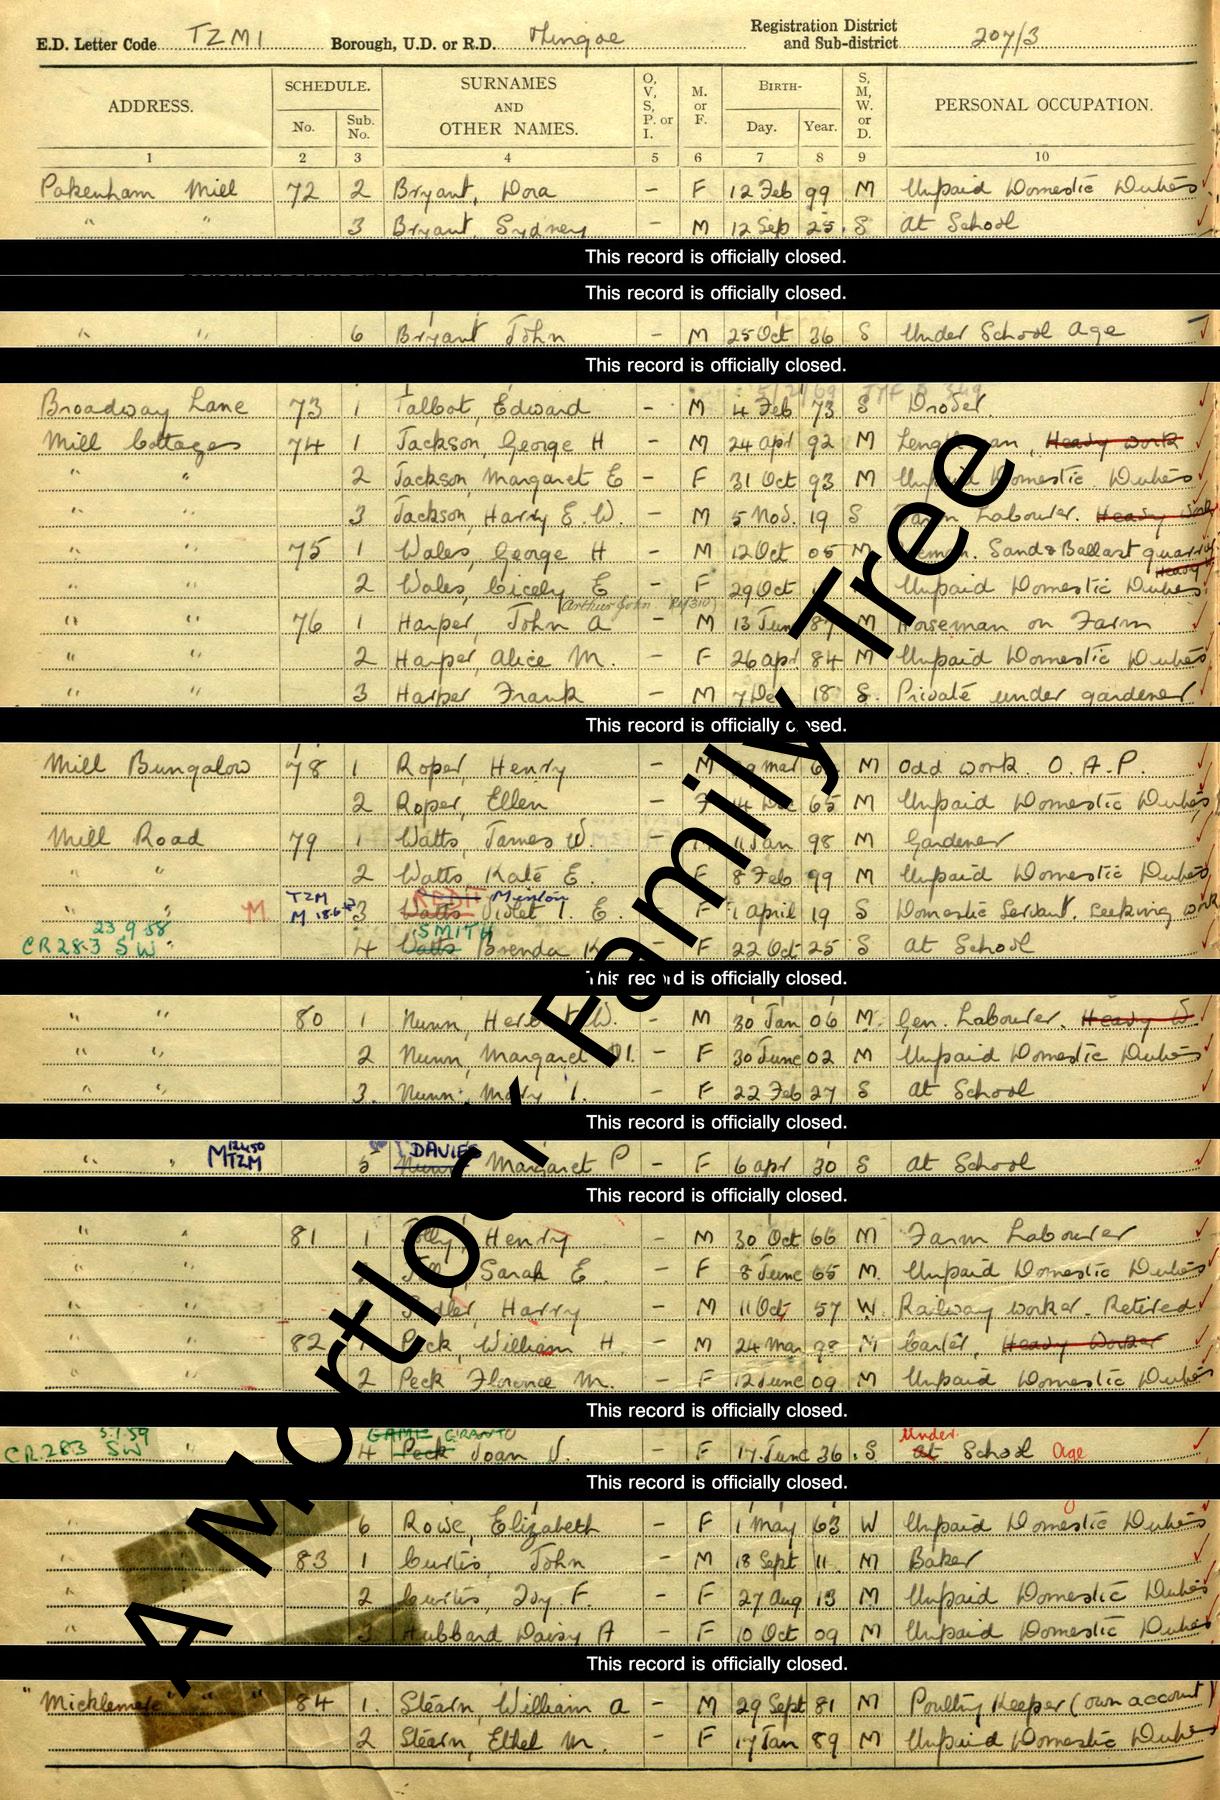 E.D. Letter Code TZM1 Borough, U.D. or R.D. Thingoe Registration District and Sub-district 207/3
ADDRESS. SCHEDULE. No. Sub. No. SURNAMES AND OTHER NAMES. O, V, S, P. or I. M. or F. BIRTH- Day. Year. S, M, W. or D. PERSONAL OCCUPATION.
1 2 3 4 5 6 7 8 9 10
Pakenham Mill 72 2 Bryant, Dora - F 12 Feb 99 M Unpaid Domestic Duties
" " 3 Bryant, Sydney - M 12 Sep 25 S At School
This record is officially closed.
This record is officially closed.
" " 6 Bryant John - M 25 Oct 36 S Under School Age
This record is officially closed.
Broadway Lane 73 1 Talbot, Edward - M 4 Feb 73 S Drover
Mill Cottages 74 1 Jackson George H - M 24 Apr 92 M Lengthman, Heavy work
" 2 Jackson, Margaret E - F 31 Oct 93 M Unpaid Domestic Duties
" " 3 Jackson, Harry E. W. - M 5 Nov. 19 S Farm Labourer. Heavy Work
" " 75 1 Wales, George H - M 12 Oct 05 M Sand & Ballast quarry Heavy
" " 2 Wales, Cicely E - F 29 Oct M Unpaid Domestic Duties
Arthur John
" " 76 1 Harper, John A - M 13 June 87 M Horseman on Farm
" " 2 Harper, Alice M. - F 26 Apr 84 M Unpaid Domestic Duties
" " 3 Harper Frank - M 7 Dec 18 S. Private under gardener
This record is officially closed.
Mill Bungalow 78 1 Roper, Henry M Mar M Odd work. O.A.P.
2 Roper, Ellen F 14 Dec 65 M Unpaid Domestic Duties
Mill Road 79 1 Watts, James W. - 11 Jan 98 M Gardener
" " 2 Watts Kate E. F 8 Feb 99 M Unpaid Domestic Duties
TZM Minton
" " M M 3 Watts Violet I. E. F 1 April 19 S Domestic Servant, seeking work
23.9.58 SMITH
CR 283 SW " 4 Watts Brenda K - F 22 Oct 25 S At School
This record is officially closed.
" " 80 1 Nunn, Herbert W. - M 30 Jan 06 M. Gen. Labourer. Heavy W
" " 2 Nunn, Margaret M. - F 30 June 02 M Unpaid Domestic Duties
" " 3. Nunn, Mary I. F 22 Feb 27 S At School
This record is officially closed.
DAVIES
" " M TZM 5 Nunn Margaret P - F 6 Apr 30 S At School
This record is officially closed.
" " 81 1 Jolly, Henry - M 30 Oct 66 M Farm Labourer
" " Sarah E. - F 8 June 65 M. Unpaid Domestic Duties
" " Harry - M 11 Oct 57 W. Railway worker. Retired
" " 82 1 Peck, William H - M 24 Mar 98 M Carter, Heavy Worker
" " 2 Peck Florence M. - F 12 June 09 M Unpaid Domestic Duties
This record is officially closed.
5.1.59 GAME
CR.283 SW " 4 Peck Joan V. - F 17 June 36 S Under At School Age
This record is officially closed.
" " 6 Rowe, Elizabeth - F 1 May 63 W Unpaid Domestic Duties
" " 83 1 Curtis, John - M 18 Sept 11 M Baker
" " 2 Curtis, Ivy F. - F 27 Aug 13 M Unpaid Domestic Duties
" " 3 Hubbard Daisy A - F 10 Oct 09 M Unpaid Domestic Duties
This record is officially closed.
"Micklemere" " " 84 1. Stearn, William A - M 29 Sept 81 M Poultry Keeper (own account)
2 Stearn, Ethel M. - F 17 Jan 89 M Unpaid Domestic Duties
A Mortlock Family Tree